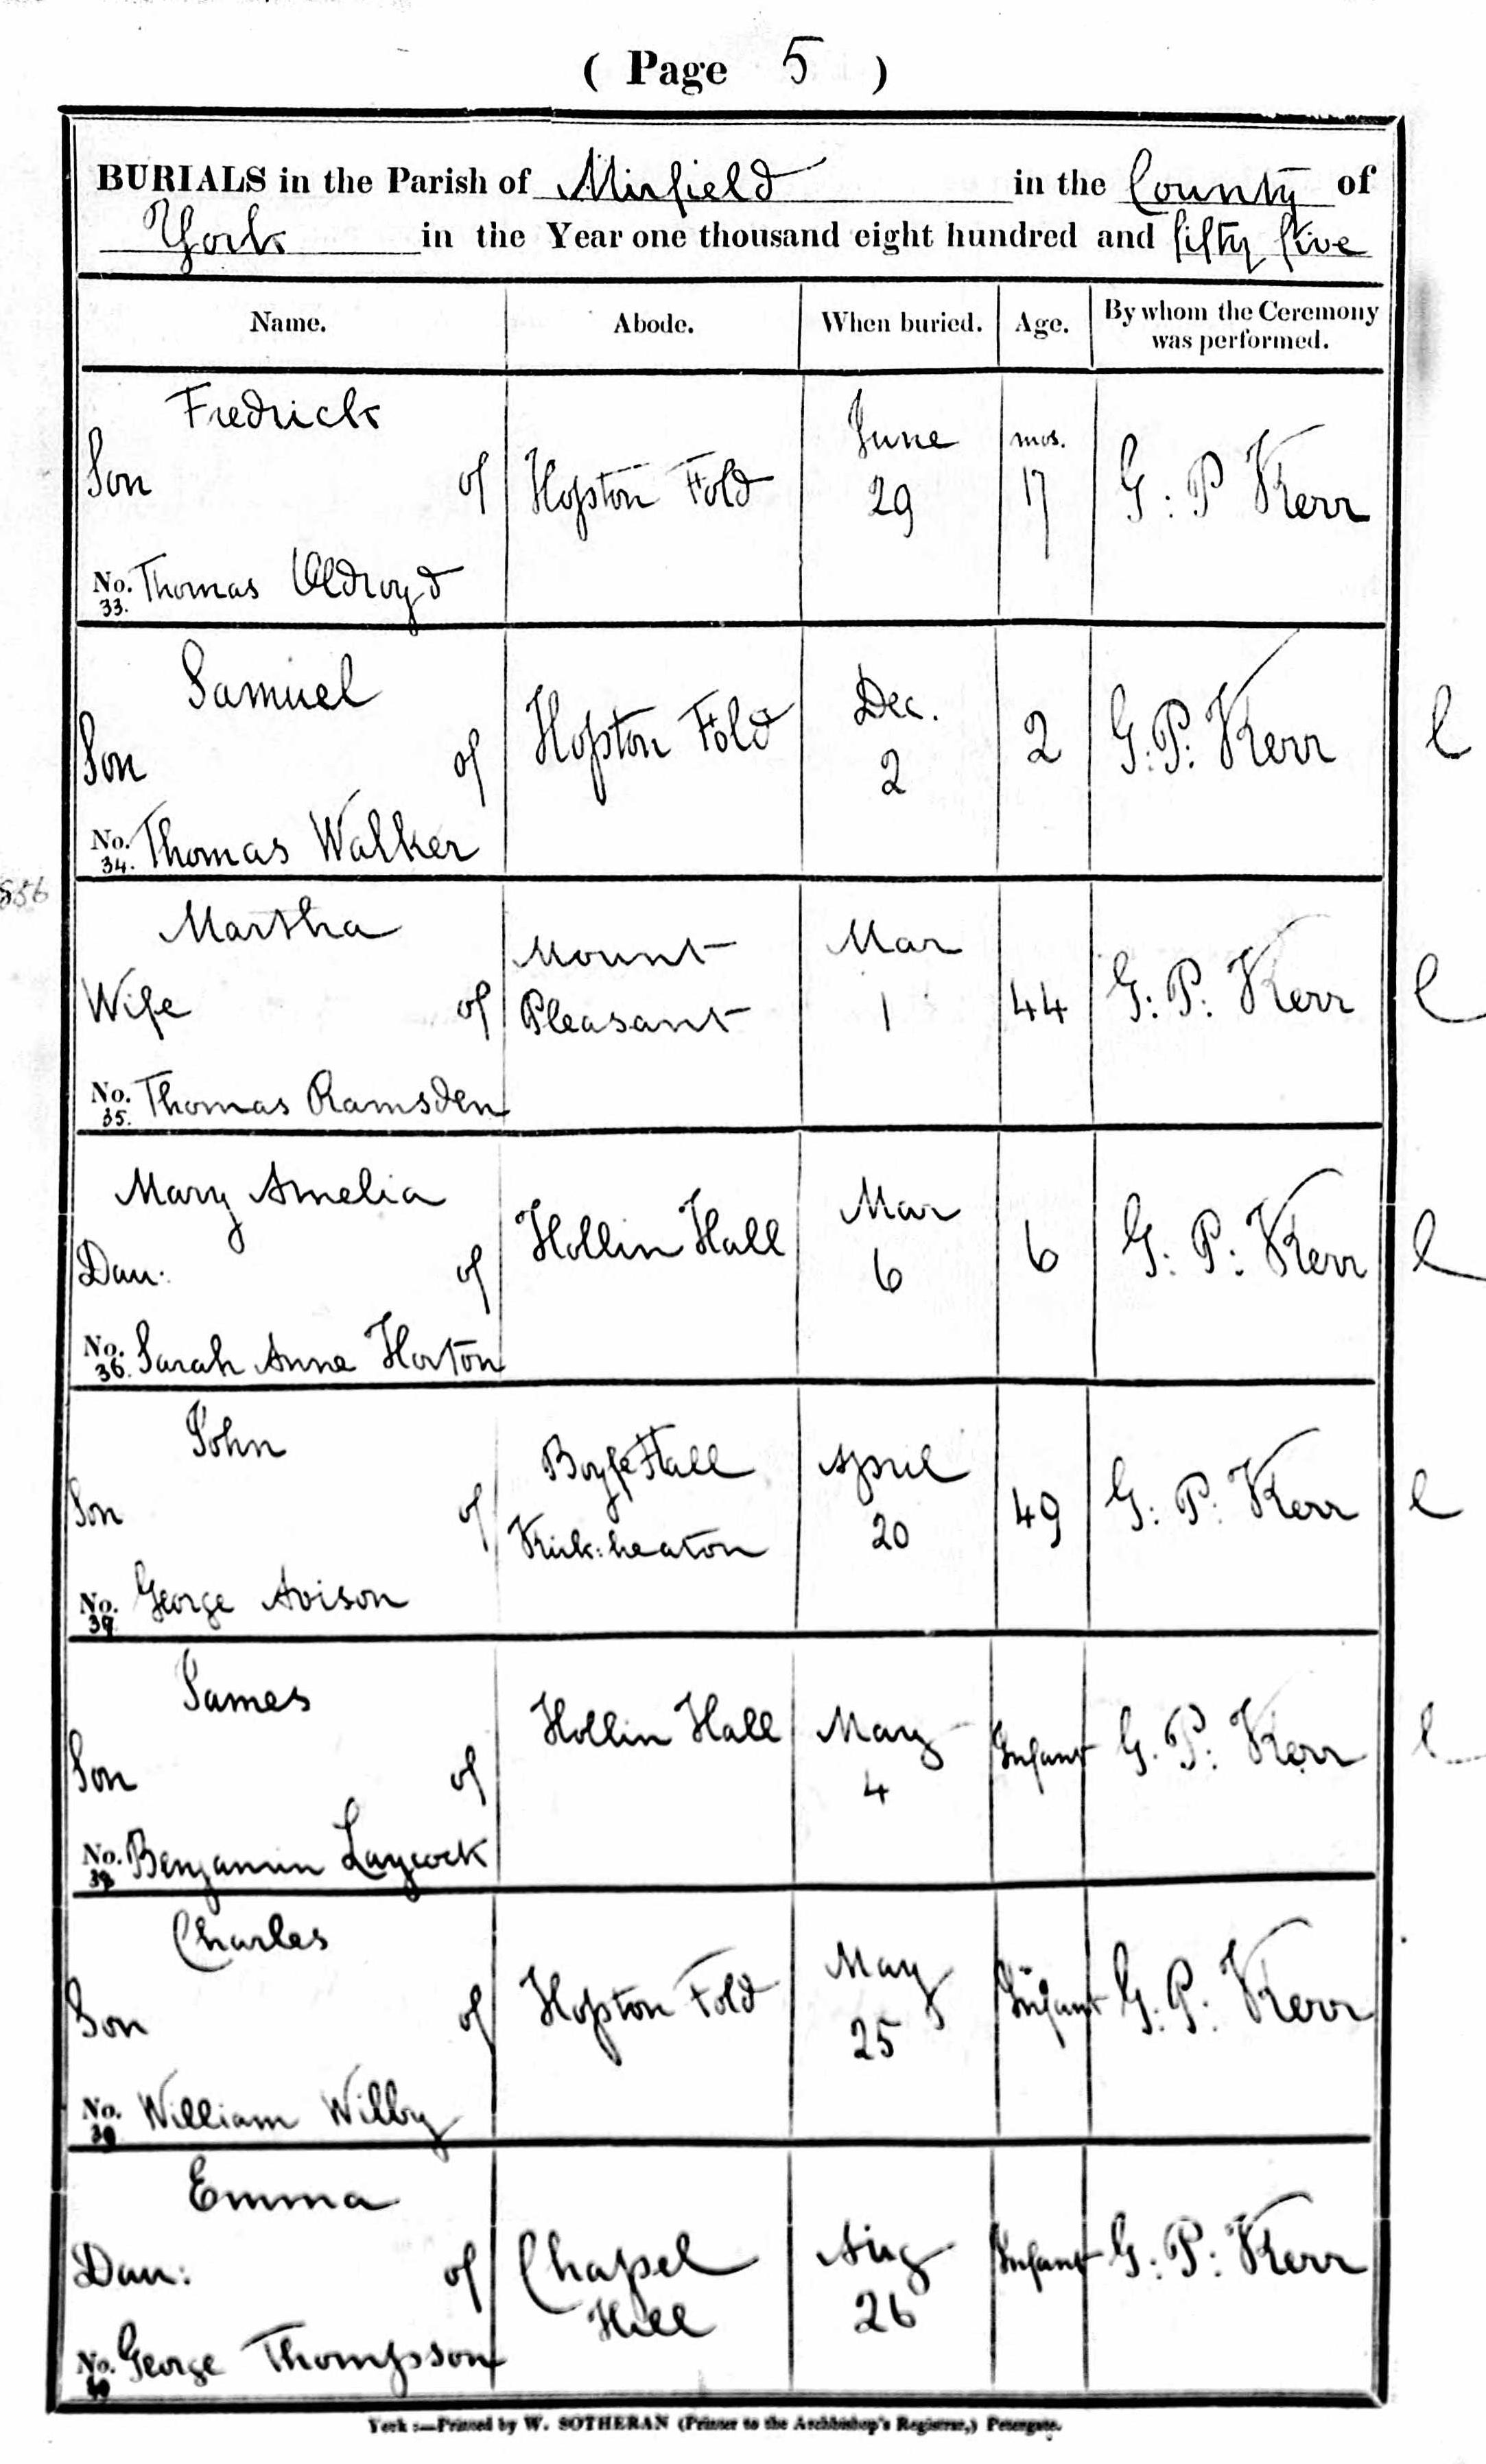 ( Page 5 )
BURIALS in the Parish of Mirfield in the County of
York in the Year one thousand eight hundred and fifty five
Name. Abode. When buried. Age. By whom the Ceremony was performed.
Fredrick
Son of Hopston Fold June 29 mos. 17 G: P Kerr
No. 33. Thomas Oldroyd
Samuel
Son of Hopston Fold Dec. 2 2 G. P. Kerr l
No. 34. Thomas Walker
856
Martha
Wife of Mount Pleasant Mar 1 44 G: P. Kerr l
No. 35. Thomas Ramsden
Mary Amelia
Dau: of Hollin Hall Mar 6 6 G: P: Kerr l
No. 36. Sarah Anne Horton
John
Son of Hall Kirk:heaton April 20 49 G: P. Kerr l
No. 37 George Avison
James
Son of Hollin Hall May 4 Infant G. P: Kerr l
No. 38 Benjamin Laycock
Charles
Son of Hopston Fold May 25 Infant G. P. Kerr
No. 39 William Wilby
Emma
Dau: of Chapel Hill Aug 26 Infant G. P: Kerr
No. 40 George Thompsson
York :—Printed by W. SOTHERAN (Printer to the Archbishop's Registrar,) Petergate.